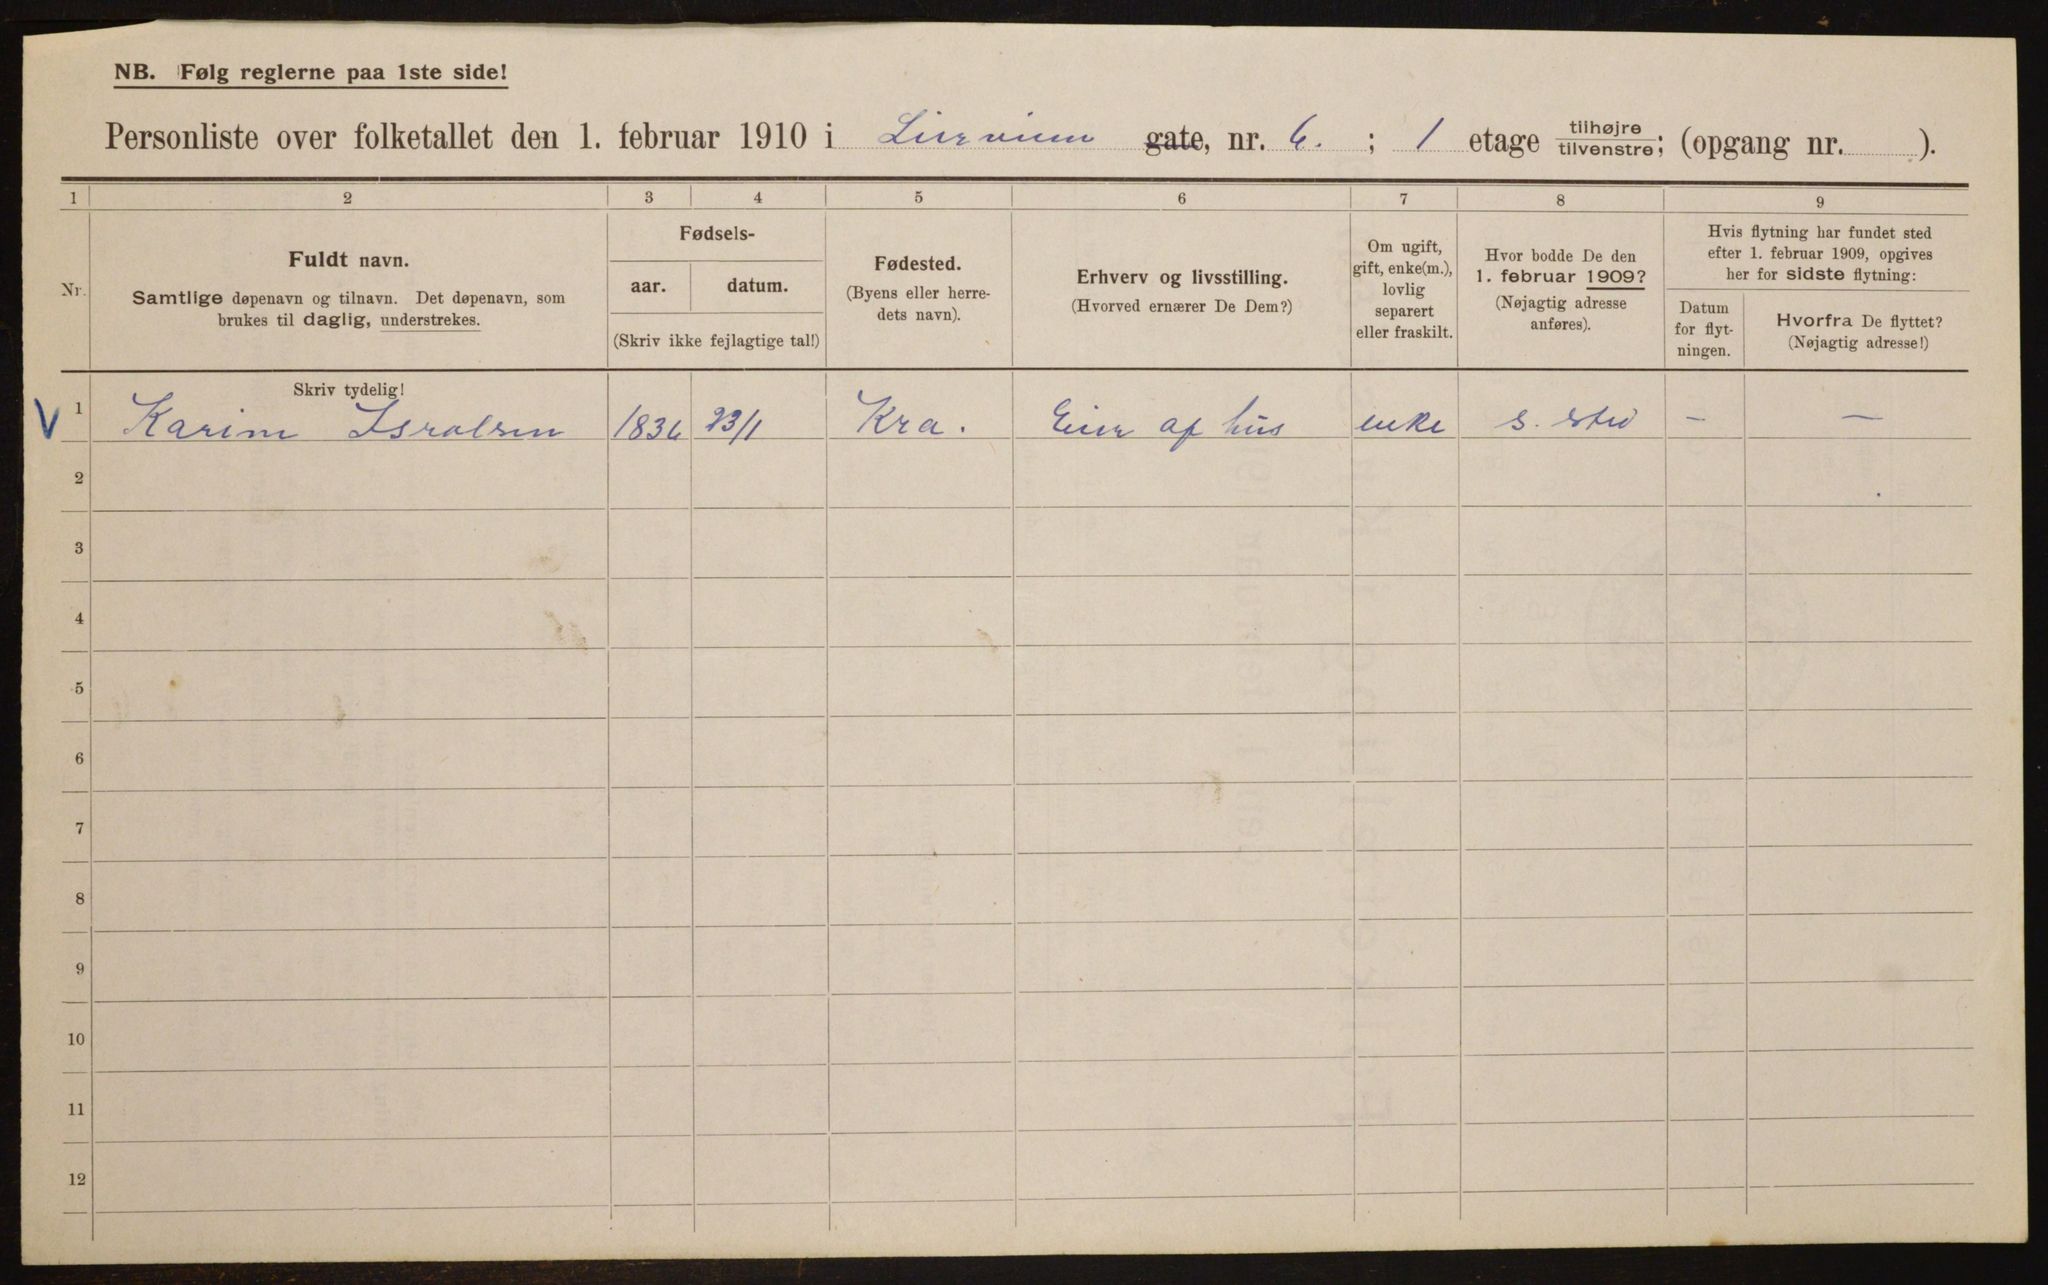 NB. Følg reglerne paa 1ste side!
Personliste over folketallet den 1. februar 1910 i Liervien gate, nr. 6. ; 1 etage tilhøjre tilvenstre; (opgang nr. ).
1 2 3 4 5 6 7 8 9
Nr.
Fuldt navn.
Samtlige døpenavn og tilnavn. Det døpenavn, som
brukes til daglig, understrekes.
Fødsels-
aar. datum.
(Skriv ikke fejlagtige tal!)
Fødested.
(Byens eller herre-
dets navn).
Erhverv og livsstilling.
(Hvorved ernærer De Dem?)
Om ugift,
gift, enke(m.),
lovlig
separert
eller fraskilt.
Hvor bodde De den
1. februar 1909?
(Nøjagtig adresse
anføres).
Hvis flytning har fundet sted
efter 1. februar 1909, opgives
her for sidste flytning:
Datum
for flyt-
ningen.
Hvorfra De flyttet?
(Nøjagtig adresse!)
Skriv tydelig!
V 1 Karine Isralsen 1836 23/1 Kra. Eier af hus enke s. sted – –
2
3
4
5
6
7
8
9
10
11
12